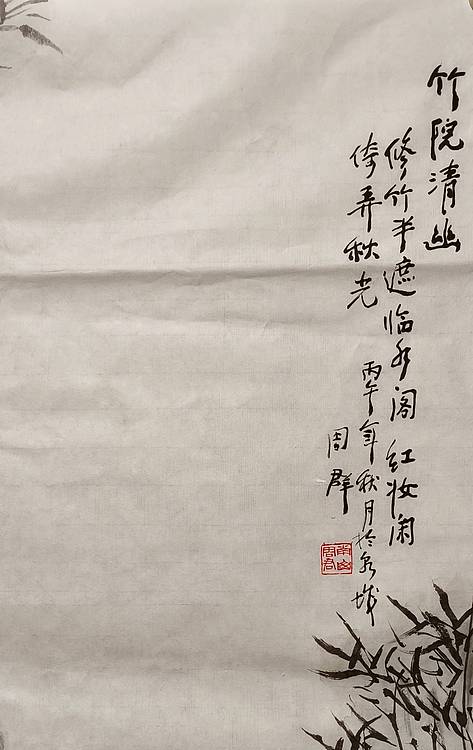 竹院清幽
修竹半遮临水阁 红妆闲
倚弄秋光 丙午年秋月於泉城
周群